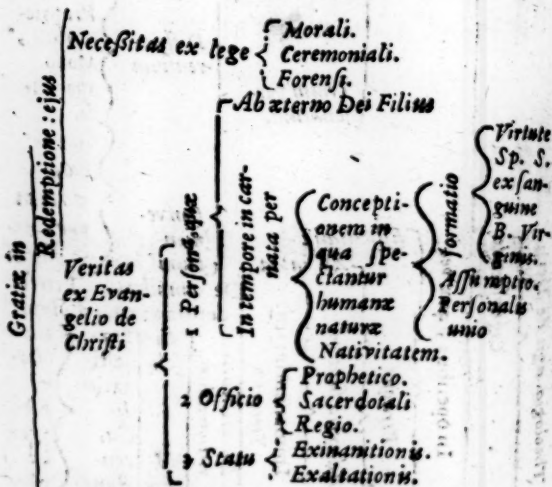 Gratiæ in
Redemptione : ejus
Neceſſitas ex lege
Morali.
Ceremoniali.
Forenſi.
Veritas
ex Evan-
gelio de
Chriſti
1 Perſonâ, quæ
Ab æterno Dei Filius
In tempore in car-
nata per
Concepti-
onem in
qua ſpe-
ctantur
humanæ
naturæ
formatio
Virtute
Sp. S.
ex ſan-
guine
B. Vir-
ginis.
Aſſumptio.
Perſonalis
unio
Nativitatem.
2 Officio
Prophetico.
Sacerdotali
Regio.
3 Statu
Exinanitionis.
Exaltationis.